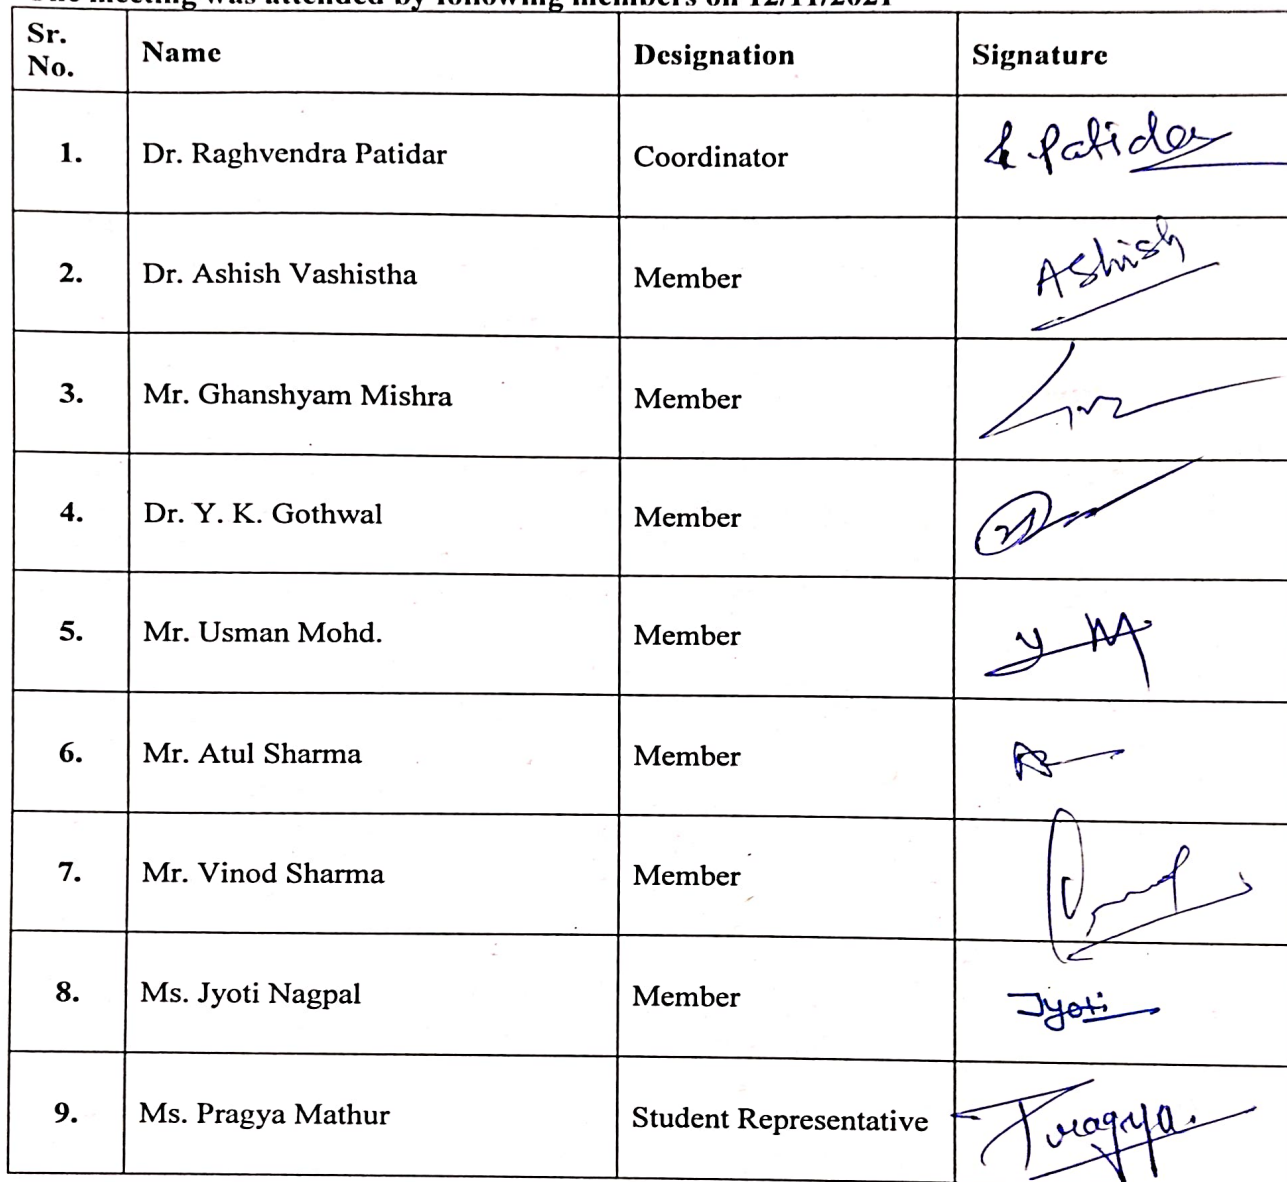 The meeting was attended by following members on 12/11/2021
Sr. No. Name Designation Signature
1. Dr. Raghvendra Patidar Coordinator R. Patidar
2. Dr. Ashish Vashistha Member Ashish
3. Mr. Ghanshyam Mishra Member
4. Dr. Y. K. Gothwal Member
5. Mr. Usman Mohd. Member
6. Mr. Atul Sharma Member
7. Mr. Vinod Sharma Member
8. Ms. Jyoti Nagpal Member Jyoti
9. Ms. Pragya Mathur Student Representative Pragya.